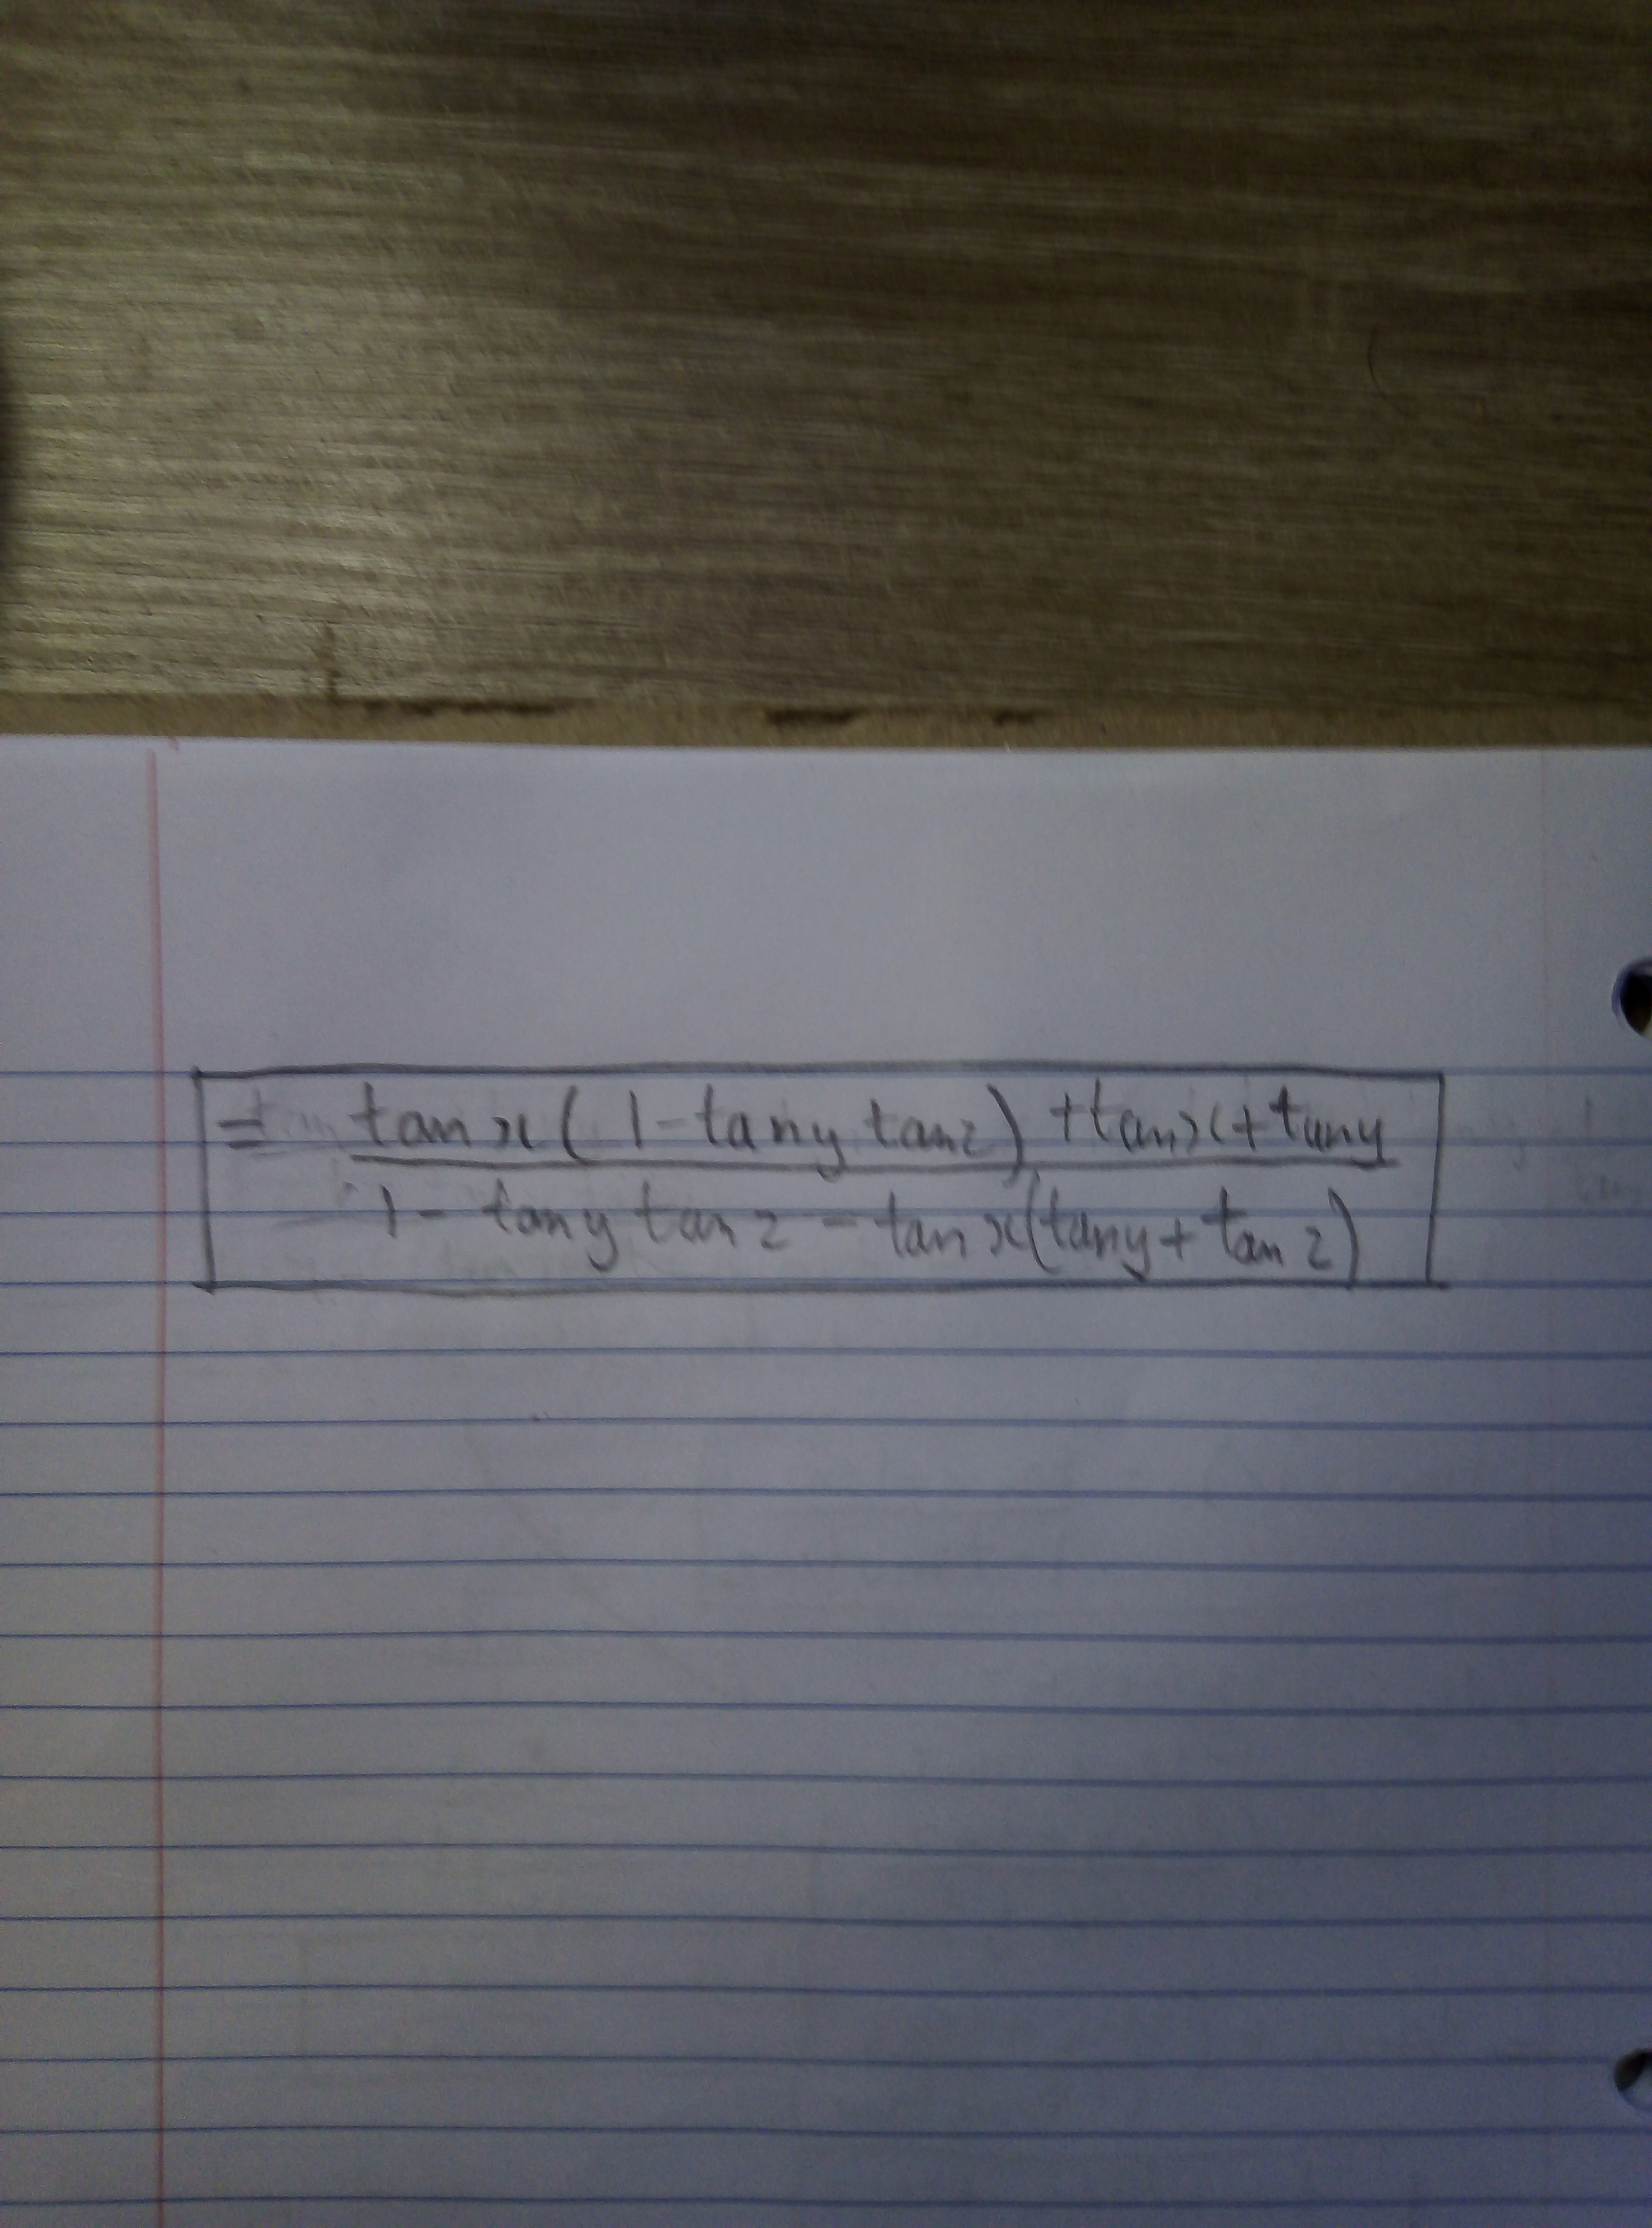 = tan x ( 1 - tan y tan z ) + tan x + tan y
1 - tan y tan z - tan x ( tan y + tan z )